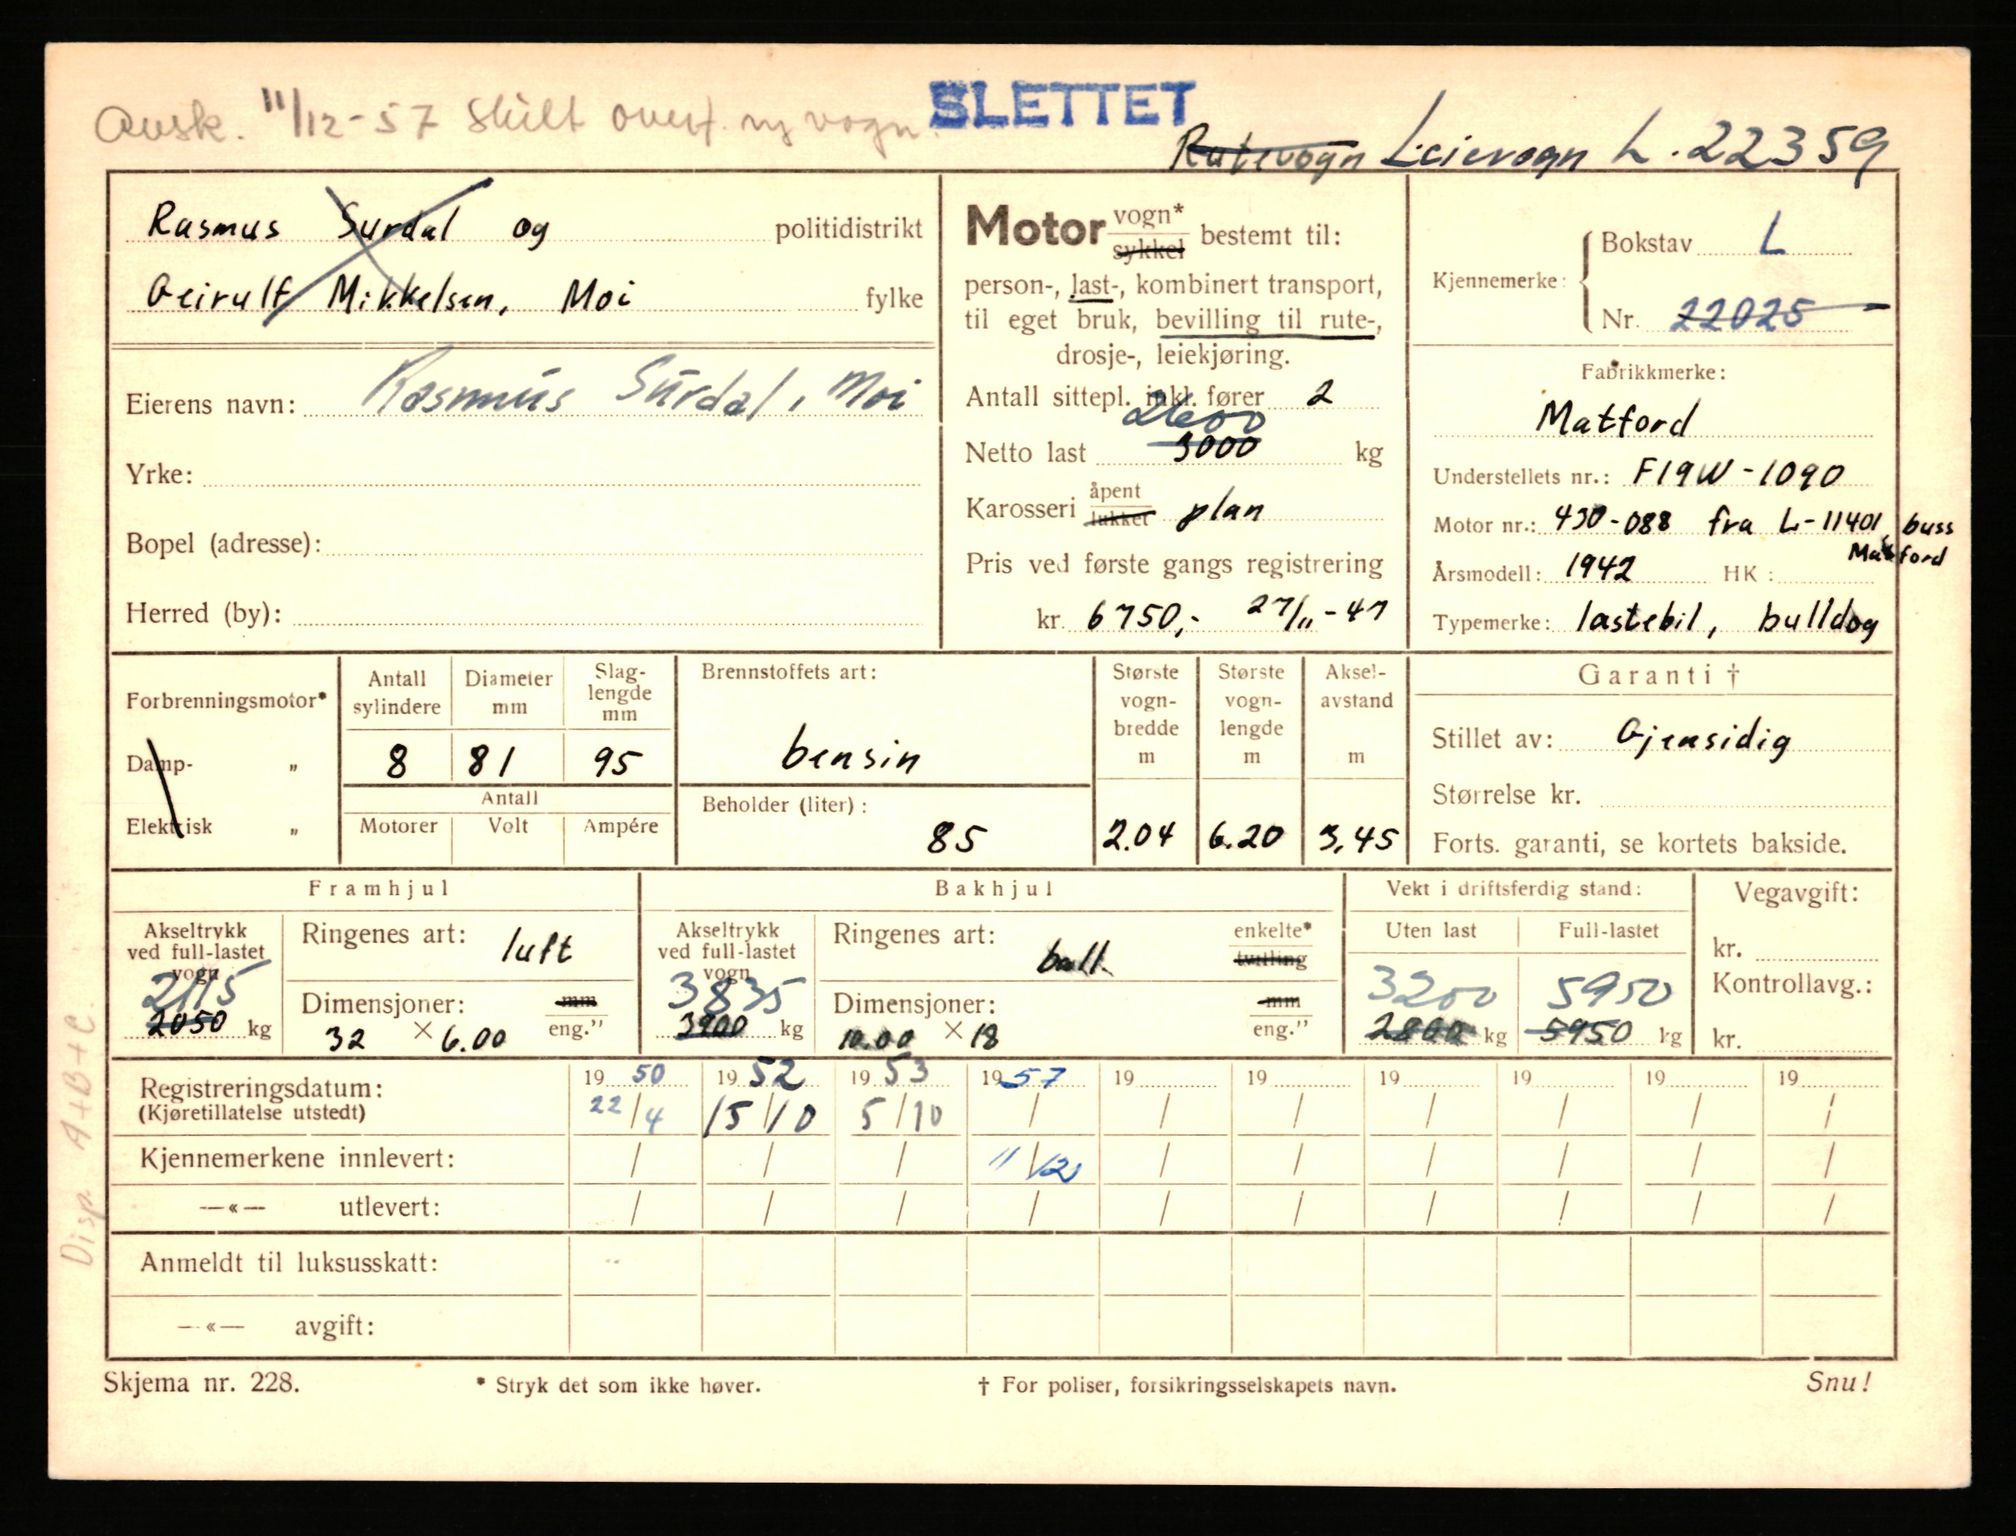 Avsk. 11/12-57 Skilt overf. ny vogn.
SLETTET
Rutevogn Leievogn L. 22359
Rasmus Surdal og politidistrikt
Geirulf Mikkelsen, Moi fylke
Eierens navn: Rasmus Surdal, Moi
Yrke:
Bopel (adresse):
Herred (by):
Motor vogn* sykkel bestemt til:
person-, last-, kombinert transport,
til eget bruk, bevilling til rute-,
drosje-, leiekjøring.
Antall sittepl. inkl. fører 2
2600
Netto last 3000 kg
Karosseri åpent lukket plan
Pris ved første gangs registrering
kr. 6750,- 27/11-47
Kjennemerke: Bokstav L
Nr. 22025
Fabrikkmerke:
Matford
Understellets nr.: F19W-1090
Motor nr.: 430-088 fra L-11401 buss
Matford
Årsmodell: 1942 HK:
Typemerke: lastebil, bulldog
Forbrenningsmotor*
Damp- „
Elektrisk „
Antall sylindere
Diameter mm
Slag-lengde mm
8 81 95
Antall
Motorer Volt Ampére
Brennstoffets art:
bensin
Beholder (liter):
85
Største vogn-bredde m
2.04
Største vogn-lengde m
6.20
Aksel-avstand m
3,45
Garanti †
Stillet av: Gjensidig
Størrelse kr.
Forts. garanti, se kortets bakside.
Framhjul
Akseltrykk ved full-lastet vogn
2115
2050 kg
Ringenes art: luft
Dimensjoner: mm
32 × 6.00 eng."
Bakhjul
Akseltrykk ved full-lastet vogn
3835
3900 kg
Ringenes art: ball. enkelte* tvilling
Dimensjoner: mm
10.00 × 18 eng."
Vekt i driftsferdig stand:
Uten last Full-lastet
3200 5950
2800 kg 5950 kg
Vegavgift:
kr.
Kontrollavg.:
kr.
Registreringsdatum: 19 50 19 52 19 53 19 57 19 19 19 19 19 19
(Kjøretillatelse utstedt) 22/4 15/10 5/10 / / / / / / /
Kjennemerkene innlevert: / / / 11/12 / / / / / /
—«— utlevert: / / / / / / / / / /
Anmeldt til luksusskatt:
—«— avgift:
Skjema nr. 228.
* Stryk det som ikke høver.
† For poliser, forsikringsselskapets navn.
Snu!
Disp. A+B+C.